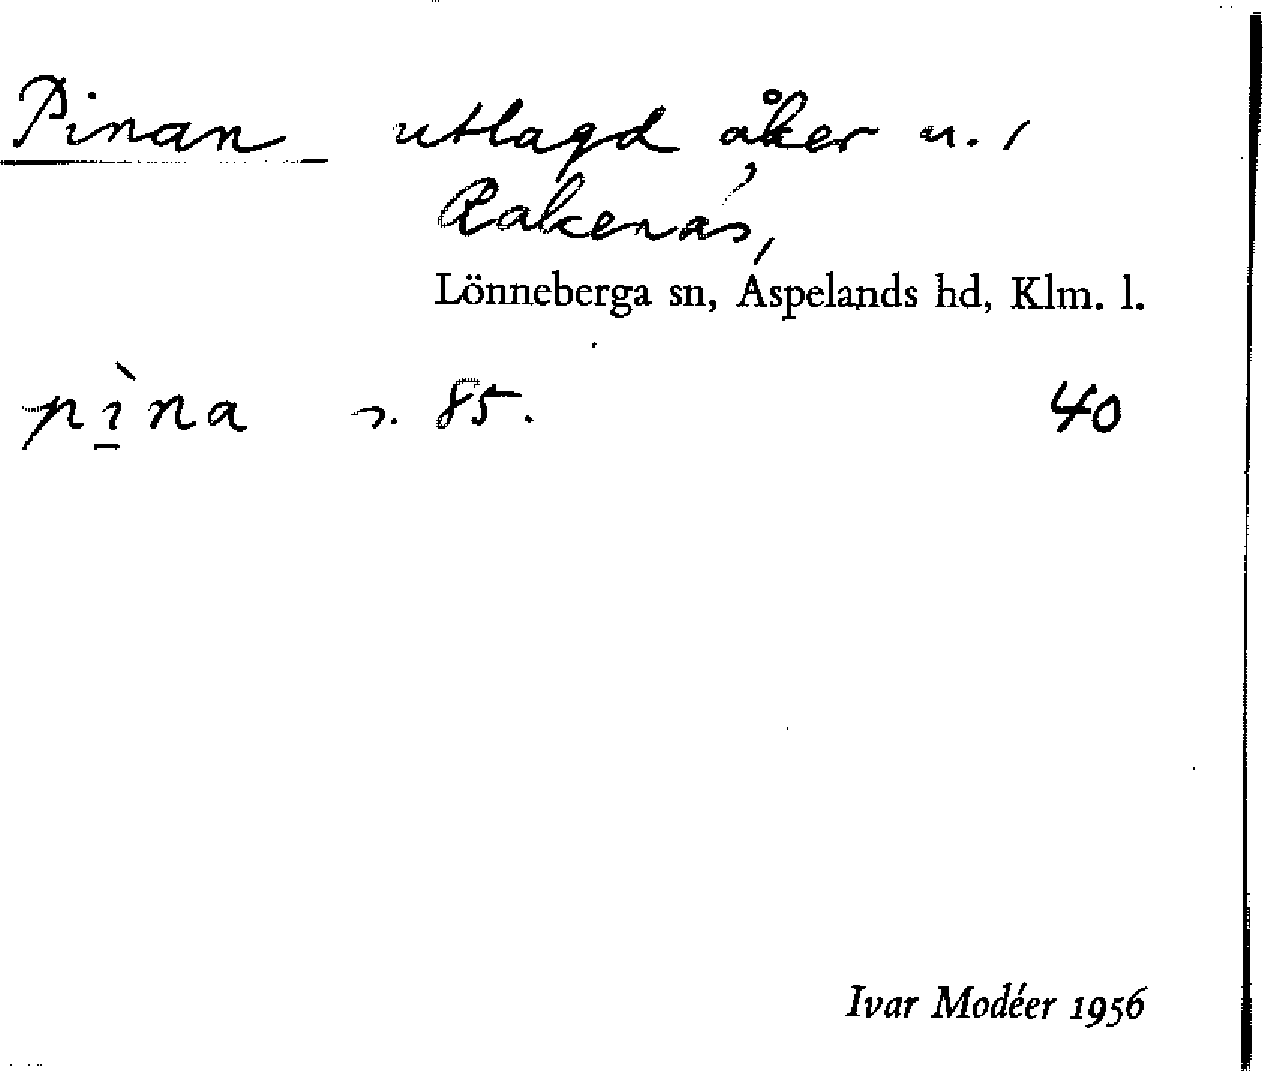 Pinan utlagd åker u. 1
Rakenäs,
Lönneberga sn, Aspelands hd, Klm. l.
pìna s. 85. 40
Ivar Modéer 1956